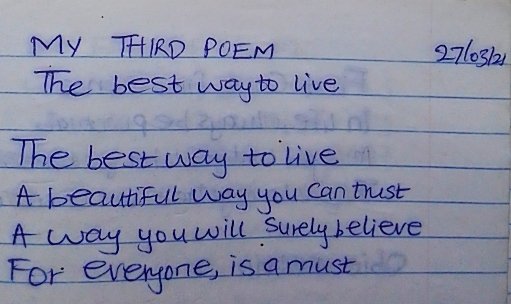 MY THIRD POEM 27/03/21
The best way to live
The best way to live
A beautiful way you can trust
A way you will surely believe
For everyone, is a must